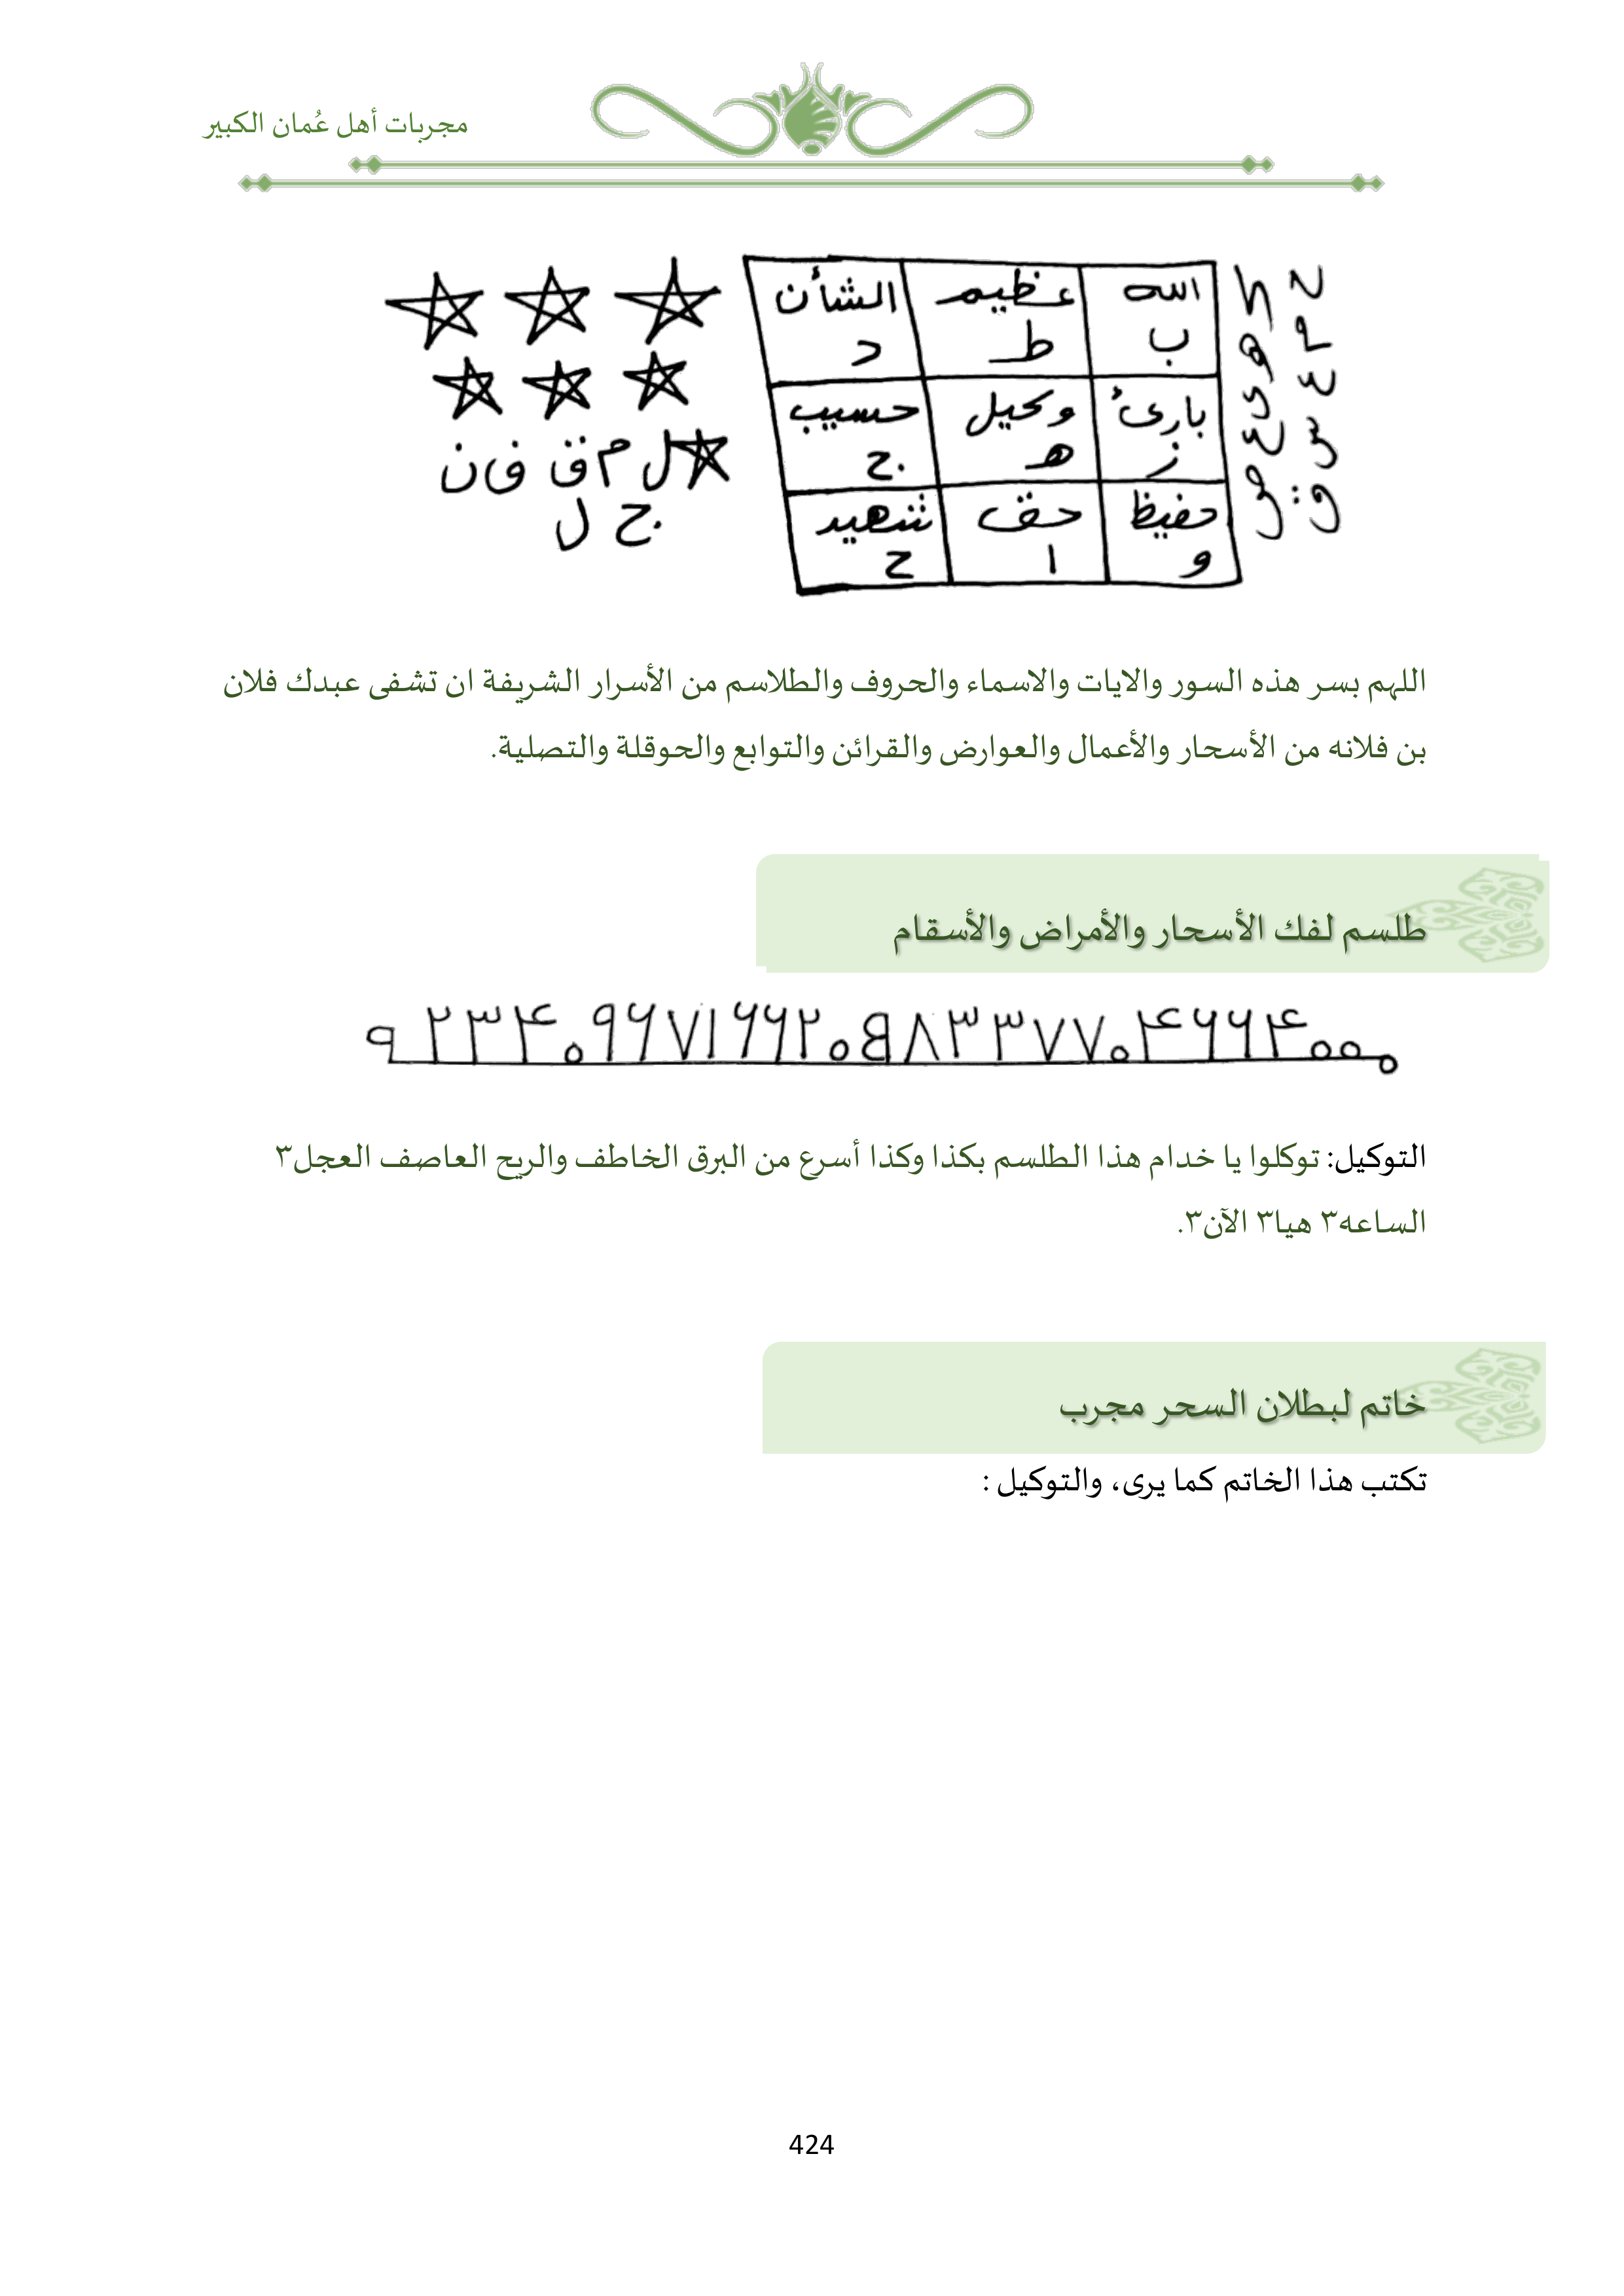 مجربات أهل عُمان الكبير
ح م ع س ق
ك ه ي ع ص
الله ب عظيم ط الشأن د
بارئ ز وكيل ه حسيب ج
حفيظ و حق ا شهيد ح
ل م ق ف ن
ج ل
اللهم بسر هذه السور والايات والاسماء والحروف والطلاسم من الأسرار الشريفة ان تشفى عبدك فلان
بن فلانه من الأسحار والأعمال والعوارض والقرائن والتوابع والحوقلة والتصلية.
طلسم لفك الأسحار والأمراض والأسقام
التوكيل: توكلوا يا خدام هذا الطلسم بكذا وكذا أسرع من البرق الخاطف والريح العاصف العجل٣
الساعه٣ هيا٣ الآن٣.
خاتم لبطلان السحر مجرب
تكتب هذا الخاتم كما يرى، والتوكيل :
424